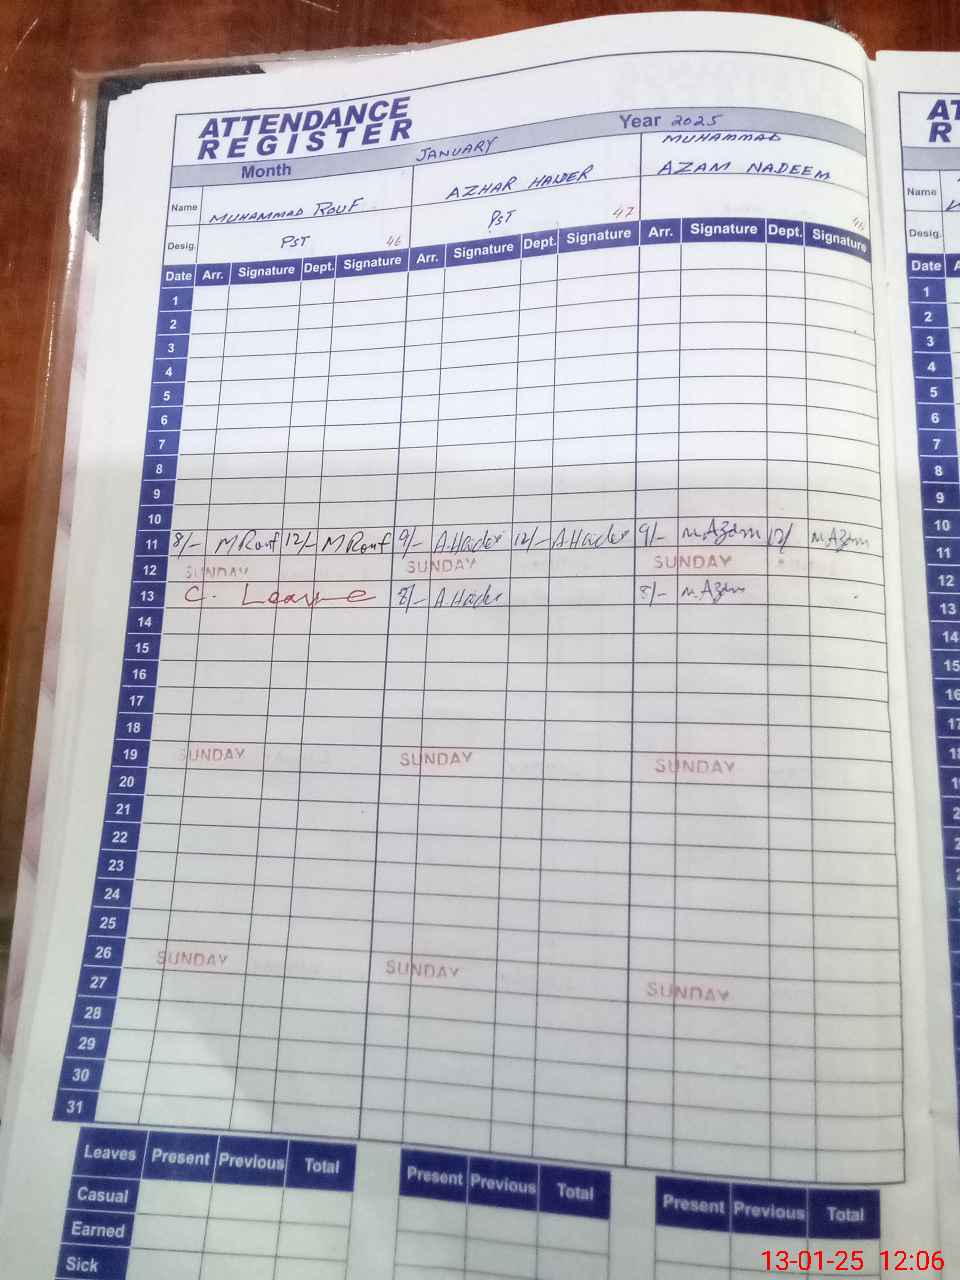 ATTENDANCE
REGISTER
Month JANUARY Year 2025
Name MUHAMMAD ROUF AZHAR HAIDER MUHAMMAD AZAM NADEEM
Desig. PST 46 PST 47
Date Arr. Signature Dept. Signature Arr. Signature Dept. Signature Arr. Signature Dept. Signature
1
2
3
4
5
6
7
8
9
10
11 8/- M Rouf 12/- M Rouf 9/- A.Haider 12/- A.Haider 9/- M.Azam 12/ M.Azam
12 SUNDAY SUNDAY SUNDAY
13 C. Leave 8/- A.Haider 8/- M.Azam
14
15
16
17
18
19 SUNDAY SUNDAY SUNDAY
20
21
22
23
24
25
26 SUNDAY SUNDAY SUNDAY
27
28
29
30
31
Leaves Present Previous Total Present Previous Total Present Previous Total
Casual
Earned
Sick
Name
Desig.
Date
1
2
3
4
5
6
7
8
9
10
11
12
13
14
15
16
17
18
13-01-25 12:06